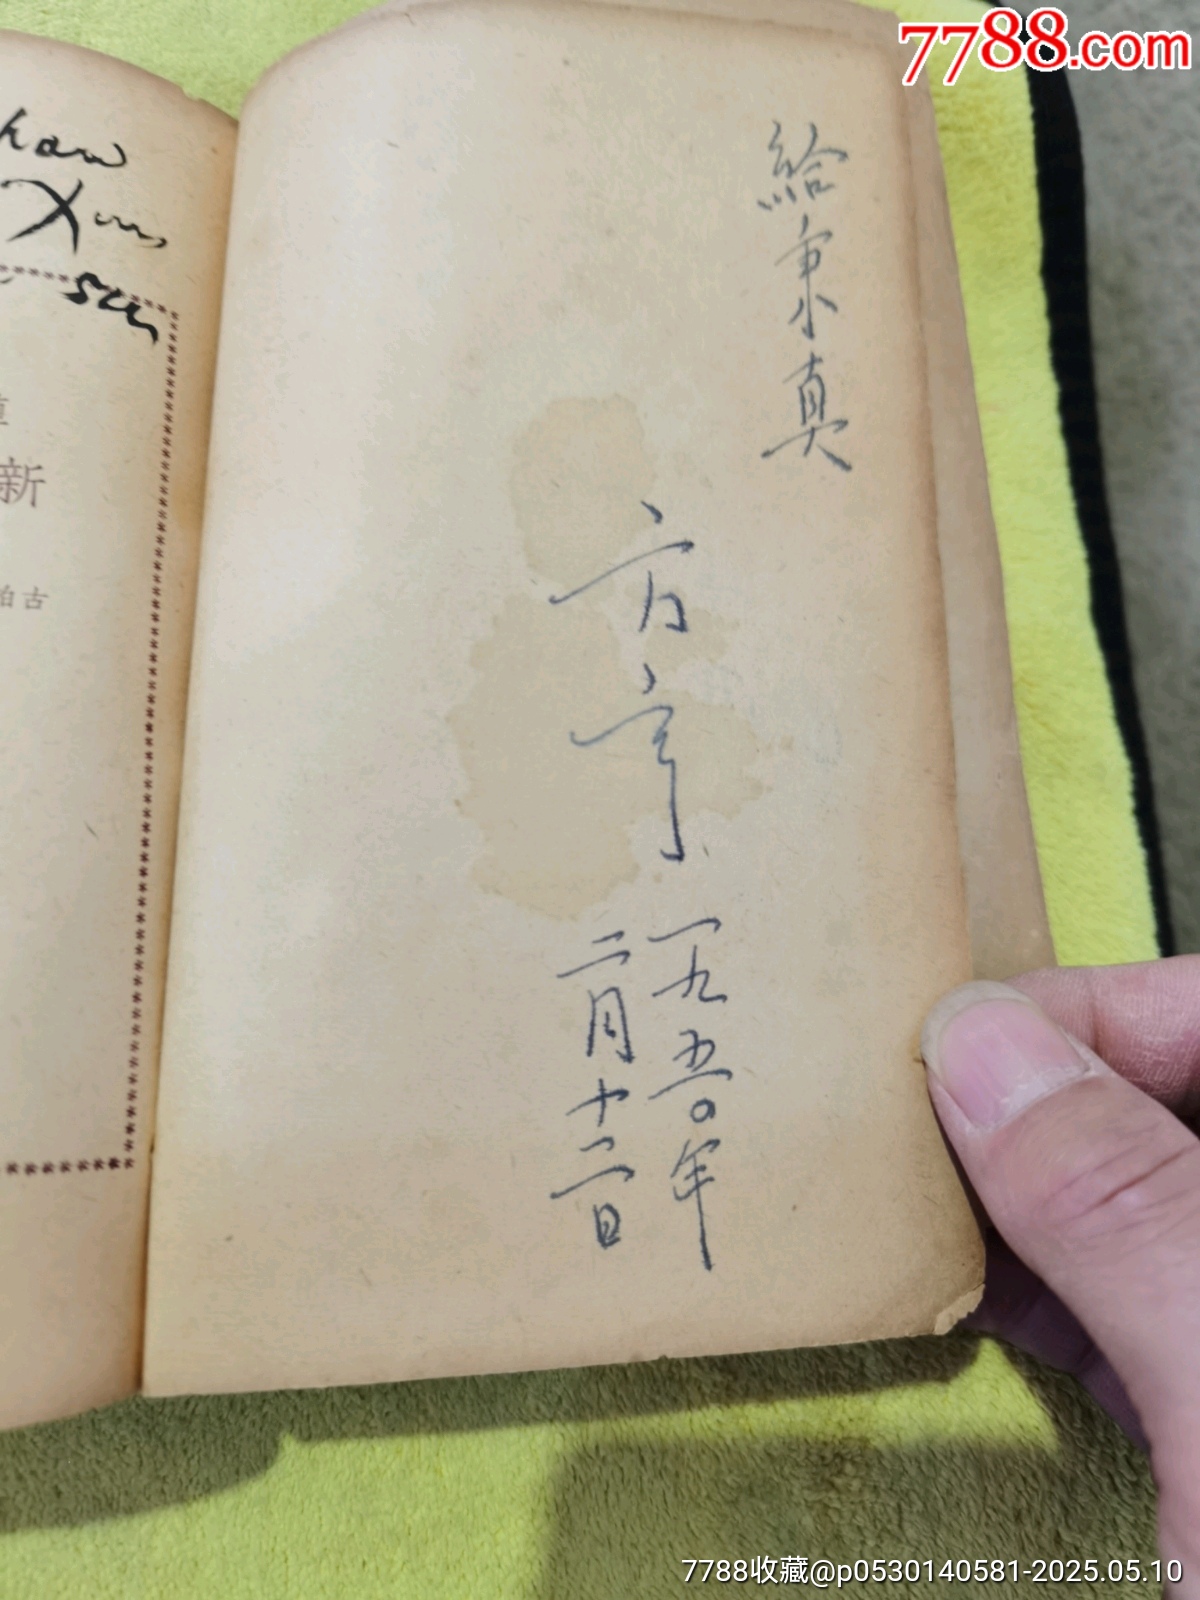 7788.com
給秉真
方亨
一九五〇年
二月十二日
新
柏古
7788收藏@p0530140581-2025.05.10